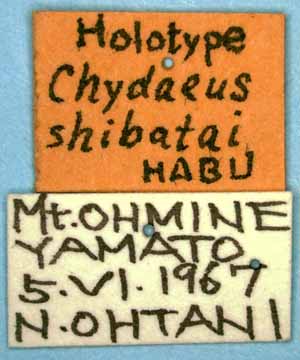 Holotype
Chydaeus
shibatai
HABU
Mt.OHMINE
YAMATO
5.VI.1967
N.OHTANI